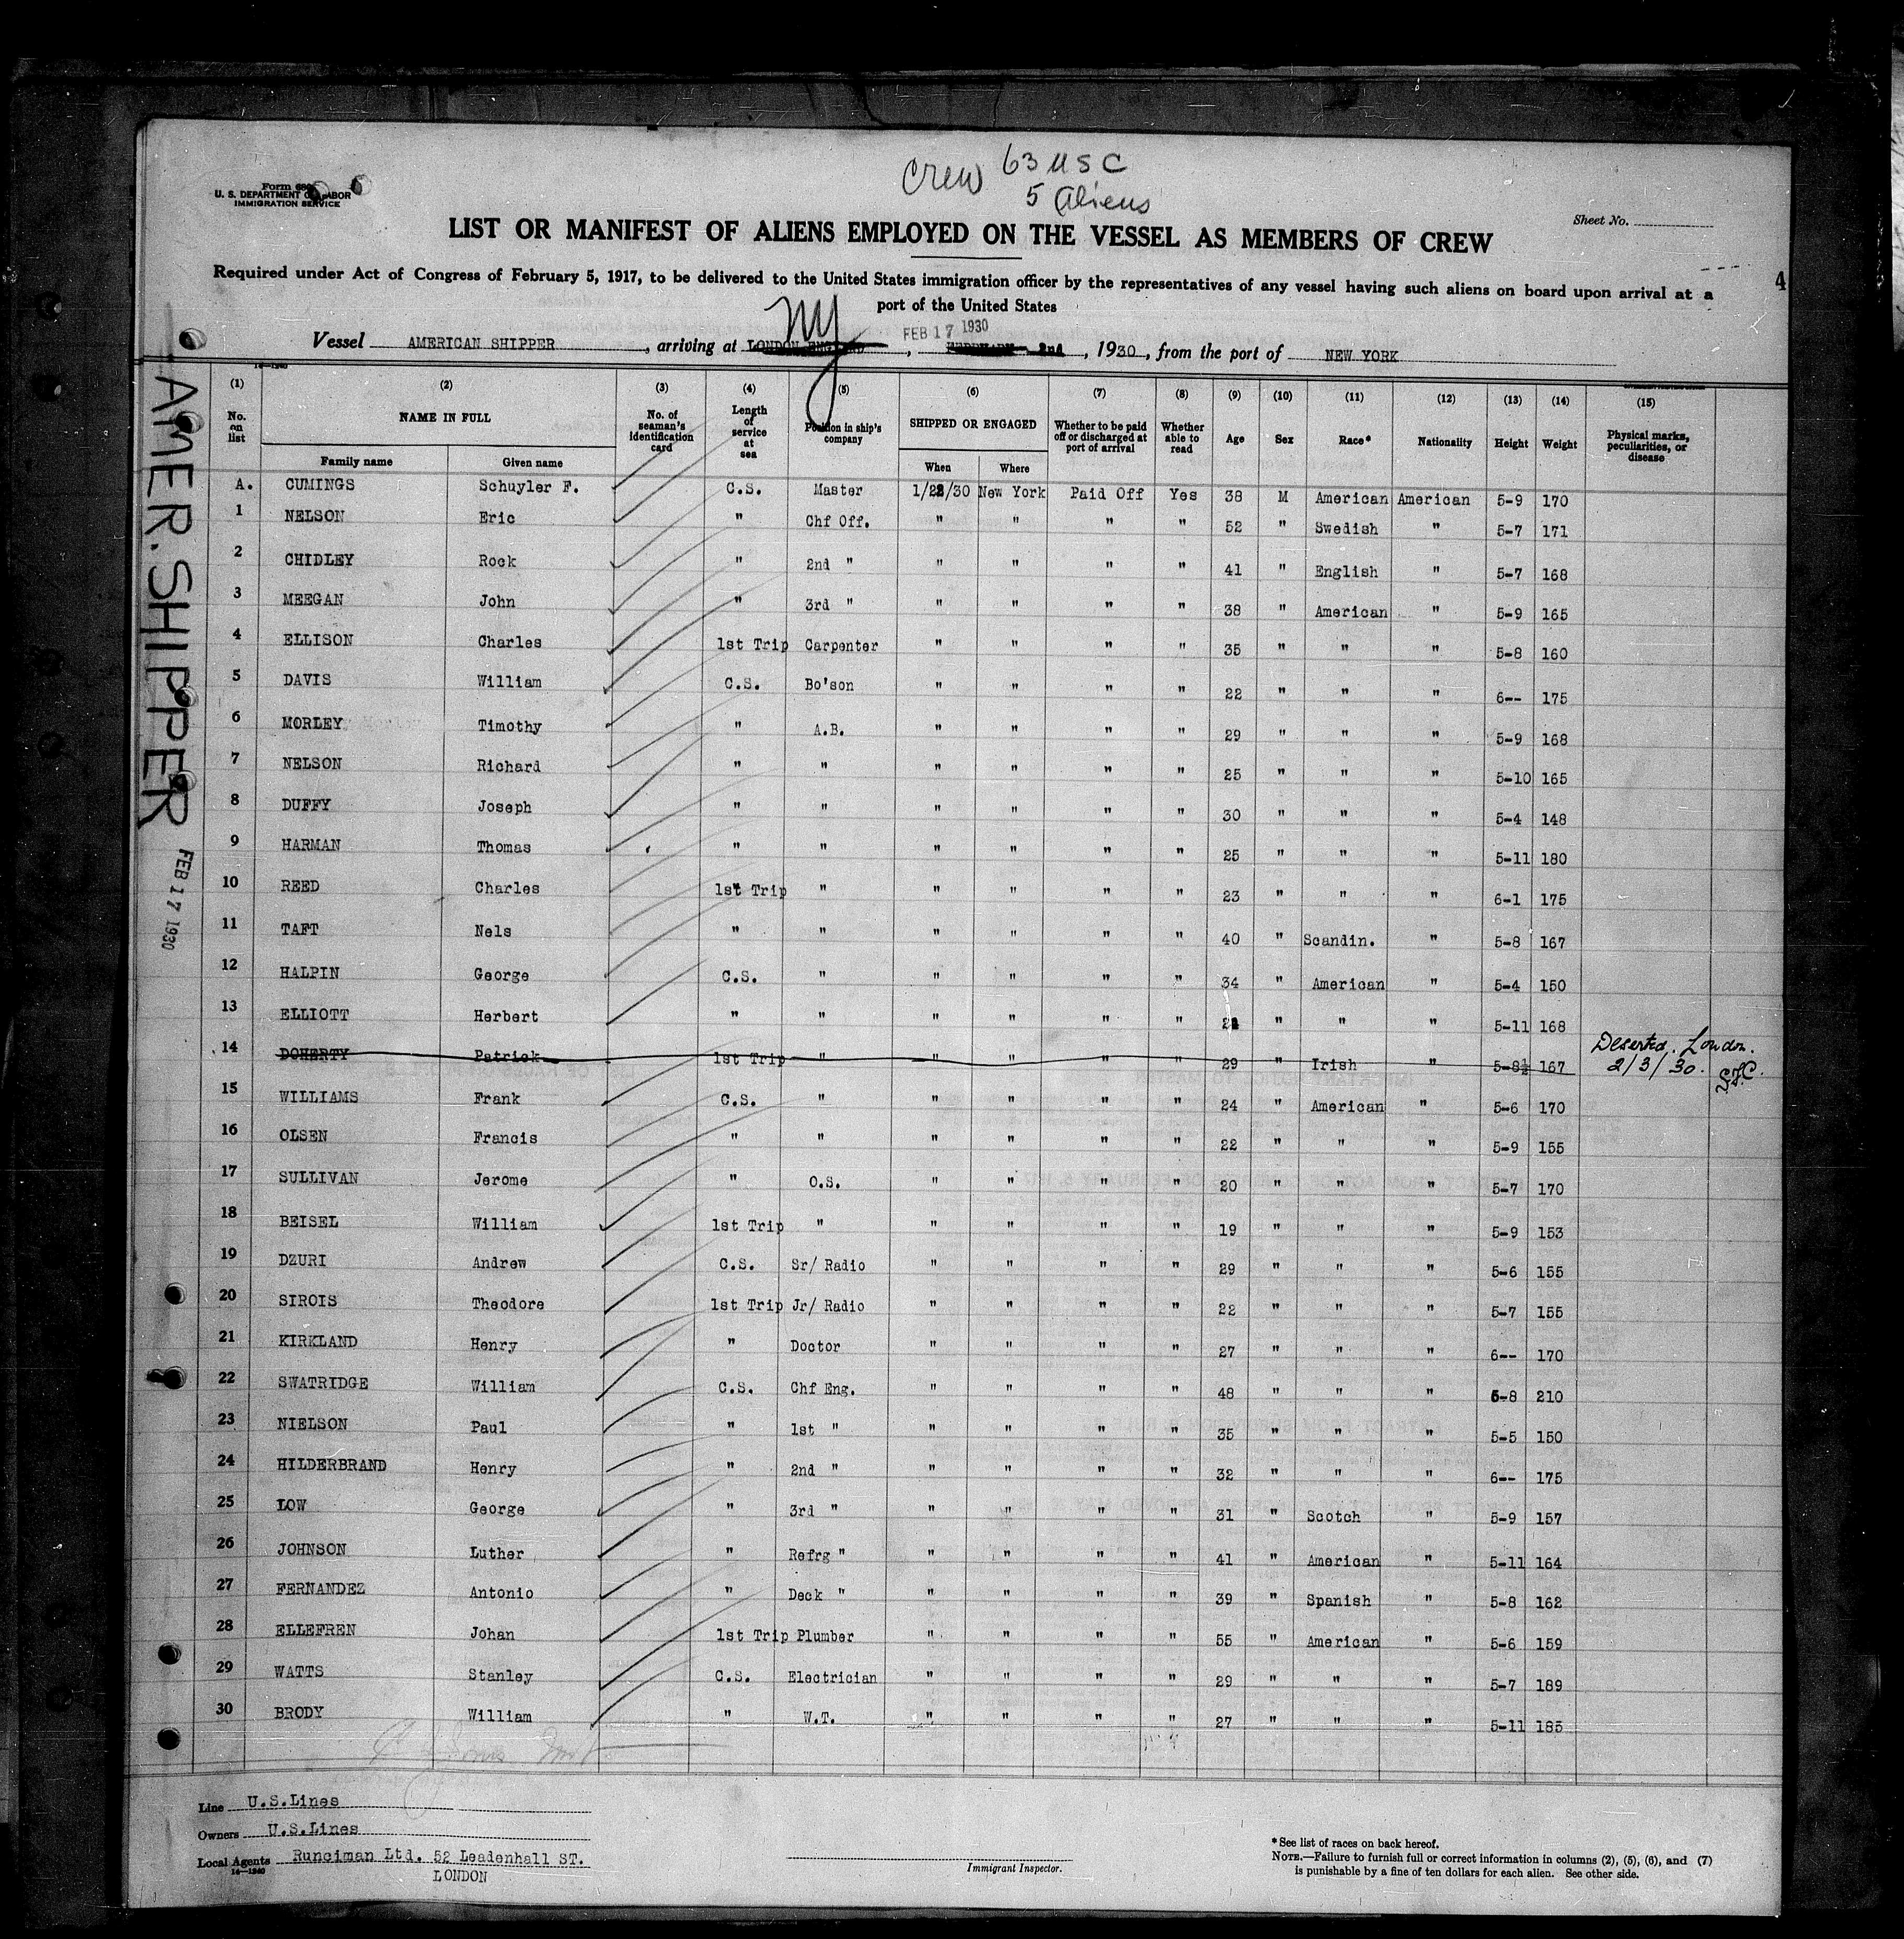 Crew 63 USC
5 Aliens
U. S. DEPARTMENT OF LABOR
IMMIGRATION SERVICE
Sheet No.
LIST OR MANIFEST OF ALIENS EMPLOYED ON THE VESSEL AS MEMBERS OF CREW
4
Required under Act of Congress of February 5, 1917, to be delivered to the United States immigration officer by the representatives of any vessel having such aliens on board upon arrival at a
port of the United States
NY
FEB 17 1930
Vessel AMERICAN SHIPPER, arriving at LONDON ENGLAND, FEBRUARY 2nd, 1930, from the port of NEW YORK
AMER. SHIPPER FEB 17 1930
(1) (2) (3) (4) (5) (6) (7) (8) (9) (10) (11) (12) (13) (14) (15)
No. on list NAME IN FULL No. of seaman's identification card Length of service at sea Position in ship's company SHIPPED OR ENGAGED Whether to be paid off or discharged at port of arrival Whether able to read Age Sex Race* Nationality Height Weight Physical marks, peculiarities, or disease
Family name Given name When Where
A. CUMINGS Schuyler F. C.S. Master 1/22/30 New York Paid Off Yes 38 M American American 5-9 170
1 NELSON Eric " Chf Off. " " " " 52 " Swedish " 5-7 171
2 CHIDLEY Rock " 2nd " " " " " 41 " English " 5-7 168
3 MEEGAN John " 3rd " " " " " 38 " American " 5-9 165
4 ELLISON Charles 1st Trip Carpenter " " " " 35 " " " 5-8 160
5 DAVIS William C.S. Bo'son " " " " 22 " " " 6-- 175
6 MORLEY Timothy " A.B. " " " " 29 " " " 5-9 168
7 NELSON Richard " " " " " " 25 " " " 5-10 165
8 DUFFY Joseph " " " " " " 30 " " " 5-4 148
9 HARMAN Thomas " " " " " " 25 " " " 5-11 180
10 REED Charles 1st Trip " " " " " 23 " " " 6-1 175
11 TAFT Nels " " " " " " 40 " Scandin. " 5-8 167
12 HALPIN George C.S. " " " " " 34 " American " 5-4 150
13 ELLIOTT Herbert " " " " " " " " " 5-11 168
14 DOHERTY Patrick 1st Trip " " " " " 29 " Irish " 5-8½ 167 Deserted. London. 2/3/30. S.F.C.
15 WILLIAMS Frank C.S. " " " " " 24 " American " 5-6 170
16 OLSEN Francis " " " " " " 22 " " " 5-9 155
17 SULLIVAN Jerome " O.S. " " " " 20 " " " 5-7 170
18 BEISEL William 1st Trip " " " " " 19 " " " 5-9 153
19 DZURI Andrew C.S. Sr/ Radio " " " " 29 " " " 5-6 155
20 SIROIS Theodore 1st Trip Jr/ Radio " " " " 22 " " " 5-7 155
21 KIRKLAND Henry " Doctor " " " " 27 " " " 6-- 170
22 SWATRIDGE William C.S. Chf Eng. " " " " 48 " " " 5-8 210
23 NIELSON Paul " 1st " " " " " 35 " " " 5-5 150
24 HILDERBRAND Henry " 2nd " " " " " 32 " " " 6-- 175
25 LOW George " 3rd " " " " " 31 " Scotch " 5-9 157
26 JOHNSON Luther " Refrg " " " " " 41 " American " 5-11 164
27 FERNANDEZ Antonio " Deck " " " " " 39 " Spanish " 5-8 162
28 ELLEFREN Johan 1st Trip Plumber " " " " 55 " American " 5-6 159
29 WATTS Stanley C.S. Electrician " " " " 29 " " " 5-7 189
30 BRODY William " W.T. " " " " 27 " " " 5-11 185
Line U.S.Lines
Owners U.S.Lines
Local Agents Runciman Ltd. 52 Leadenhall ST.
14—1240
LONDON
Immigrant Inspector.
*See list of races on back hereof.
NOTE.—Failure to furnish full or correct information in columns (2), (5), (6), and (7)
is punishable by a fine of ten dollars for each alien. See other side.